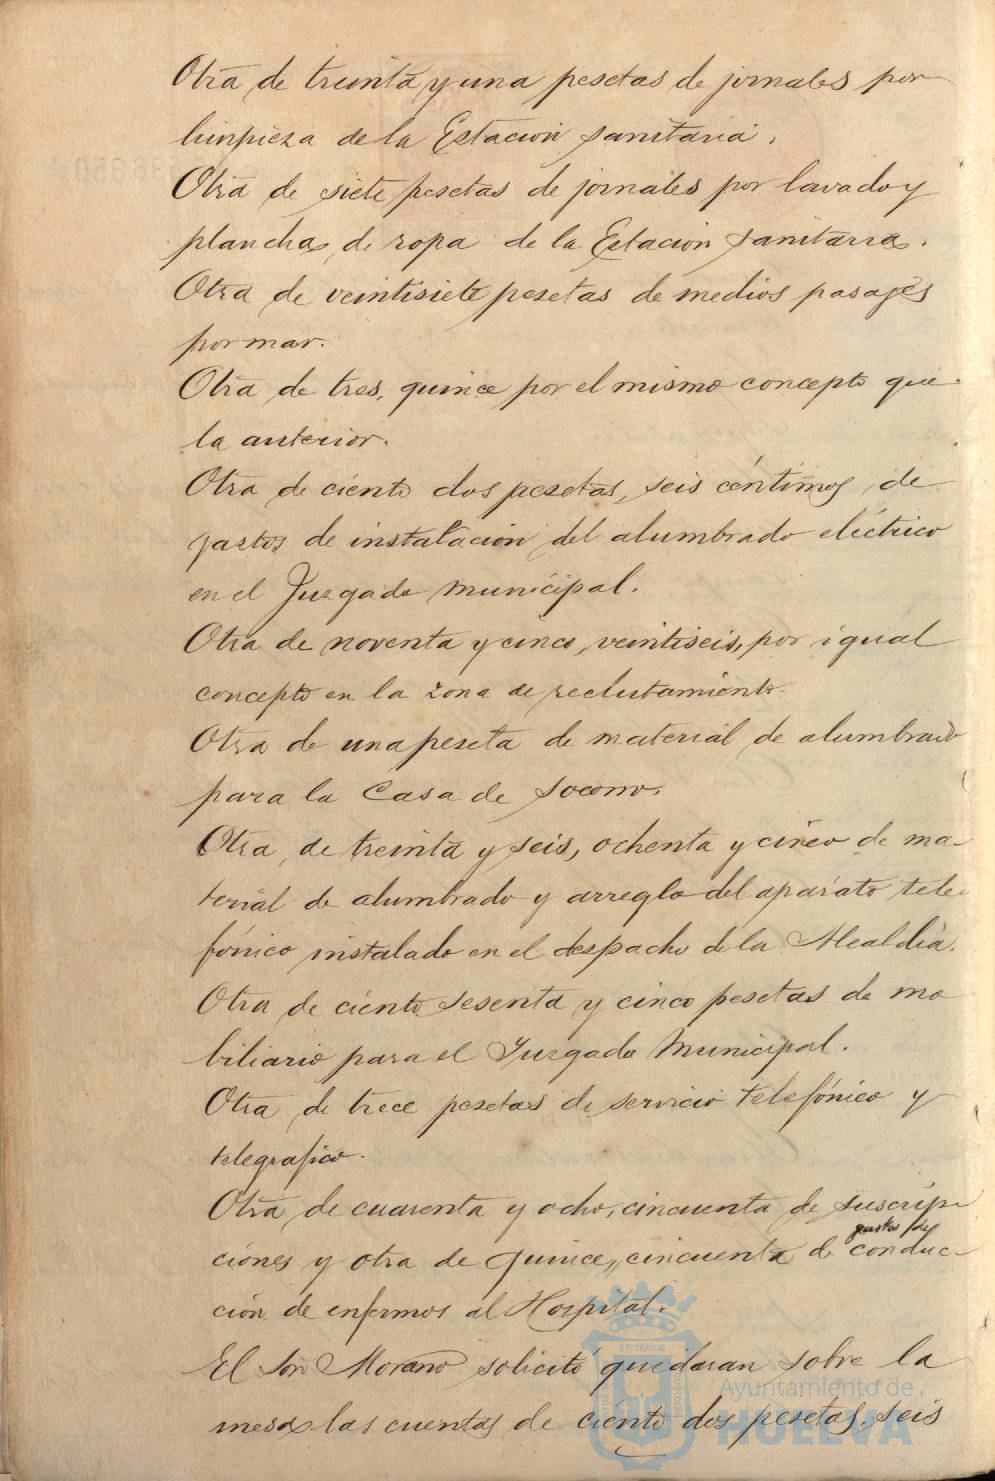 Otra de treinta y una pesetas de jornales por
limpieza de la Estacion sanitaria.
Otra de siete pesetas de jornales por lavado y
plancha de ropa de la Estacion sanitaria.
Otra de veintisiete pesetas de medios pasajes
por mar.
Otra de tres, quince por el mismo concepto que
la anterior.
Otra de ciento dos pesetas, seis céntimos, de
gastos de instalación del alumbrado eléctrico
en el Juzgado Municipal.
Otra de noventa y cinco, veintiseis, por igual
concepto en la zona de reclutamiento.
Otra de una peseta de material de alumbrado
para la Casa de Socorro.
Otra de treinta y seis, ochenta y cinco de ma-
terial de alumbrado y arreglo del aparato tele-
fónico instalado en el despacho de la Alcaldía.
Otra de ciento sesenta y cinco pesetas de mo
biliario para el Juzgado Municipal.
Otra de trece pesetas de servicio telefónico y
telegrafico.
Otra de cuarenta y ocho, cincuenta de suscrip-
gastos de
ciones y otra de quince, cincuenta de conduc-
ción de enfermos al Hospital.
El Sor Morano solicitó quedaran sobre la
mesa las cuentas de ciento dos pesetas, seis
Ayuntamiento de
HUELVA